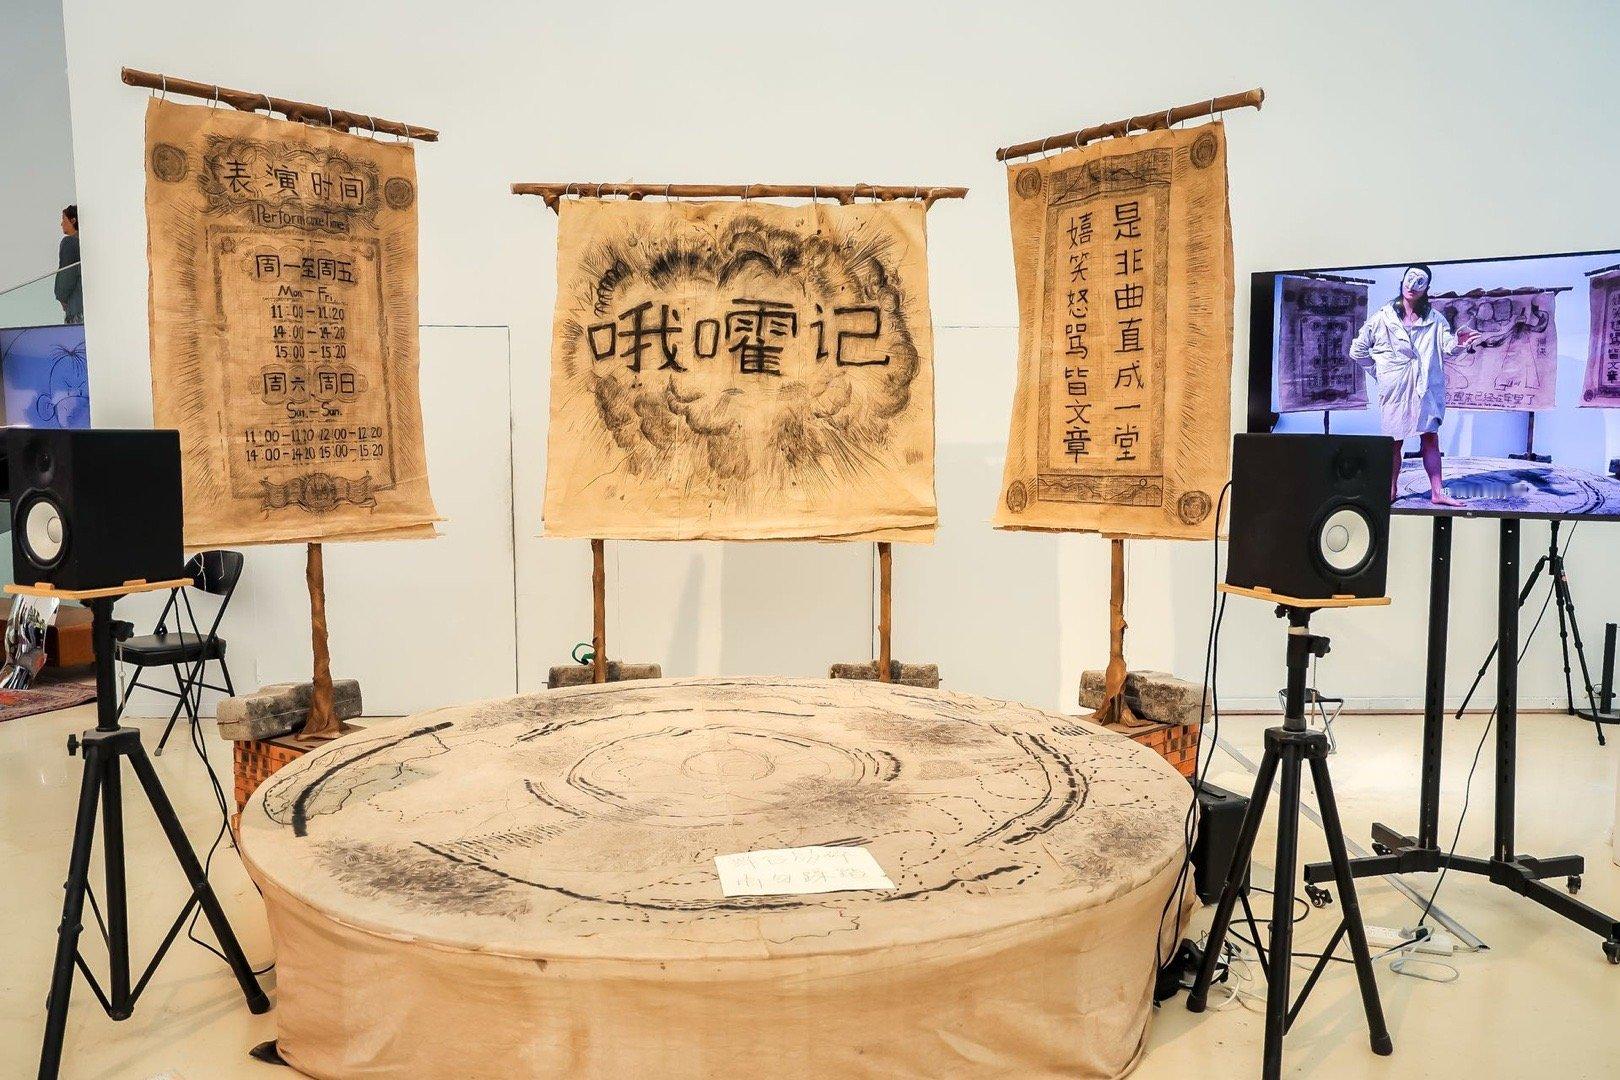 表演时间
Performance Time
周一至周五
Mon — Fri.
11:00—11:20
14:00—14:20
15:00—15:20
周六、周日
Sun.—Sun.
11:00—11:20 12:00—12:20
14:00—14:20 15:00—15:20
哦嚯记
是非曲直成一堂
嬉笑怒骂皆文章